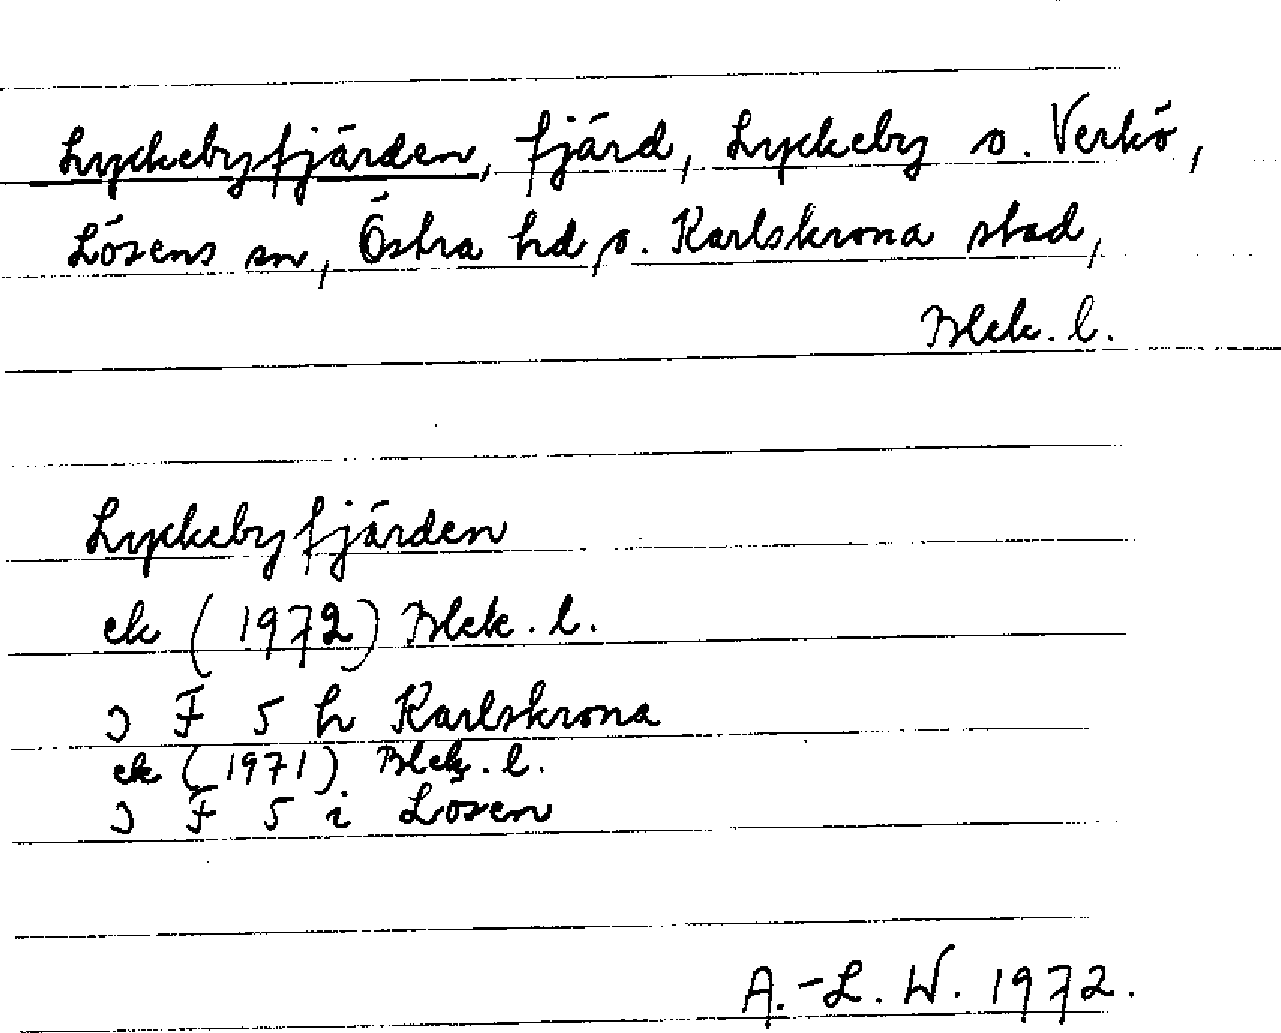 Lyckebyfjärden, fjärd, Lyckeby o. Verkö,
Lösens sn, Östra hd, o. Karlskrona stad,
Blek. l.
Lyckebyfjärden
ek (1972) Blek. l.
J F 5 h Karlskrona
ek (1971) Blek. l.
J F 5 i Lösen
A.-L. W. 1972.